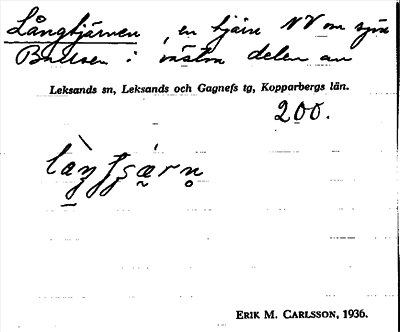 Långtjärnen, en tjärn NV om sjön
Balken i västra delen av
Leksands sn, Leksands och Gagnefs tg, Kopparbergs län.
200.
ERIK M. CARLSSON, 1936.